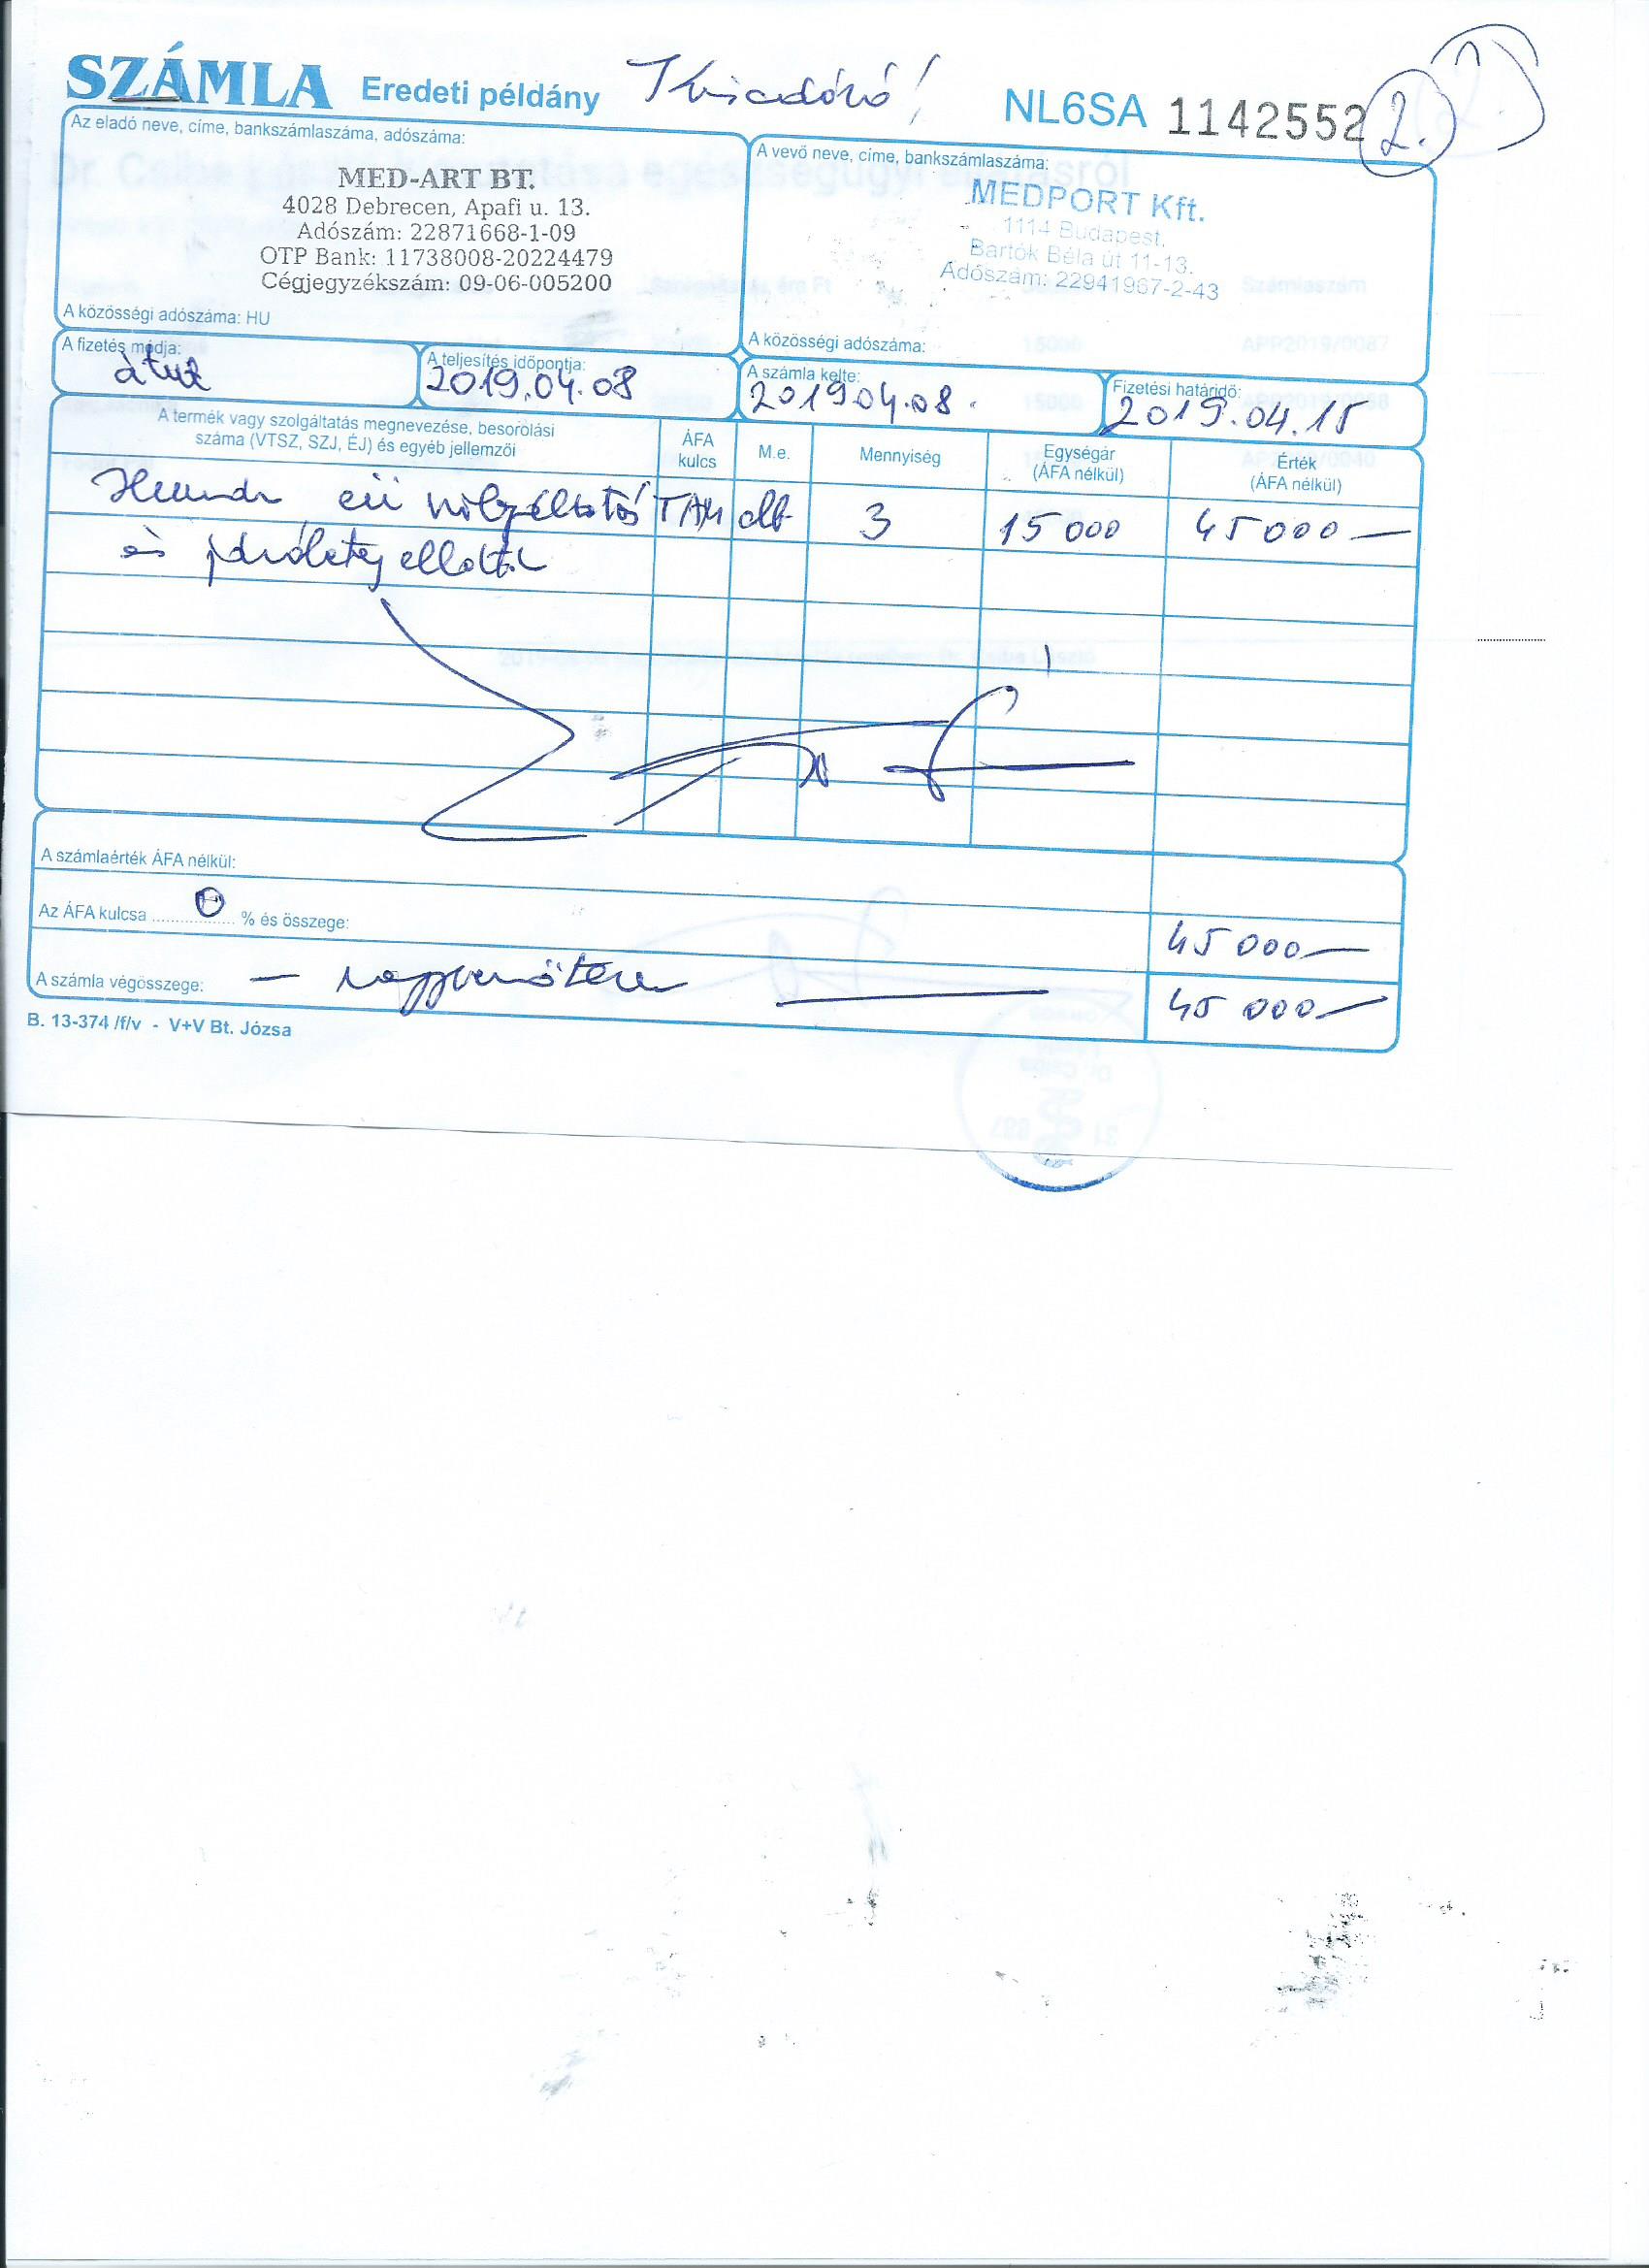 SZÁMLA Eredeti példány Kiadóró! NL6SA 1142552 2.
Az eladó neve, címe, bankszámlaszáma, adószáma:
MED-ART BT.
4028 Debrecen, Apafi u. 13.
Adószám: 22871668-1-09
OTP Bank: 11738008-20224479
Cégjegyzékszám: 09-06-005200
A közösségi adószáma: HU
A vevő neve, címe, bankszámlaszáma:
MEDPORT Kft.
1114 Budapest,
Bartók Béla út 11-13.
Adószám: 22941967-2-43
A közösségi adószáma:
A fizetés módja:
átut
A teljesítés időpontja:
2019.04.08
A számla kelte:
2019 04.08.
Fizetési határidő:
2019.04.15
A termék vagy szolgáltatás megnevezése, besorolási
száma (VTSZ, SZJ, ÉJ) és egyéb jellemzői
ÁFA
kulcs
M.e.
Mennyiség
Egységár
(ÁFA nélkül)
Érték
(ÁFA nélkül)
Humán eü szolgáltatás TAM alk 3 15 000 45 000 —
és járóbeteg ellátás
A számlaérték ÁFA nélkül:
Az ÁFA kulcsa 0 % és összege: 45 000 —
A számla végösszege: — negyvenötezer — 45 000 —
B. 13-374 /f/v - V+V Bt. Józsa